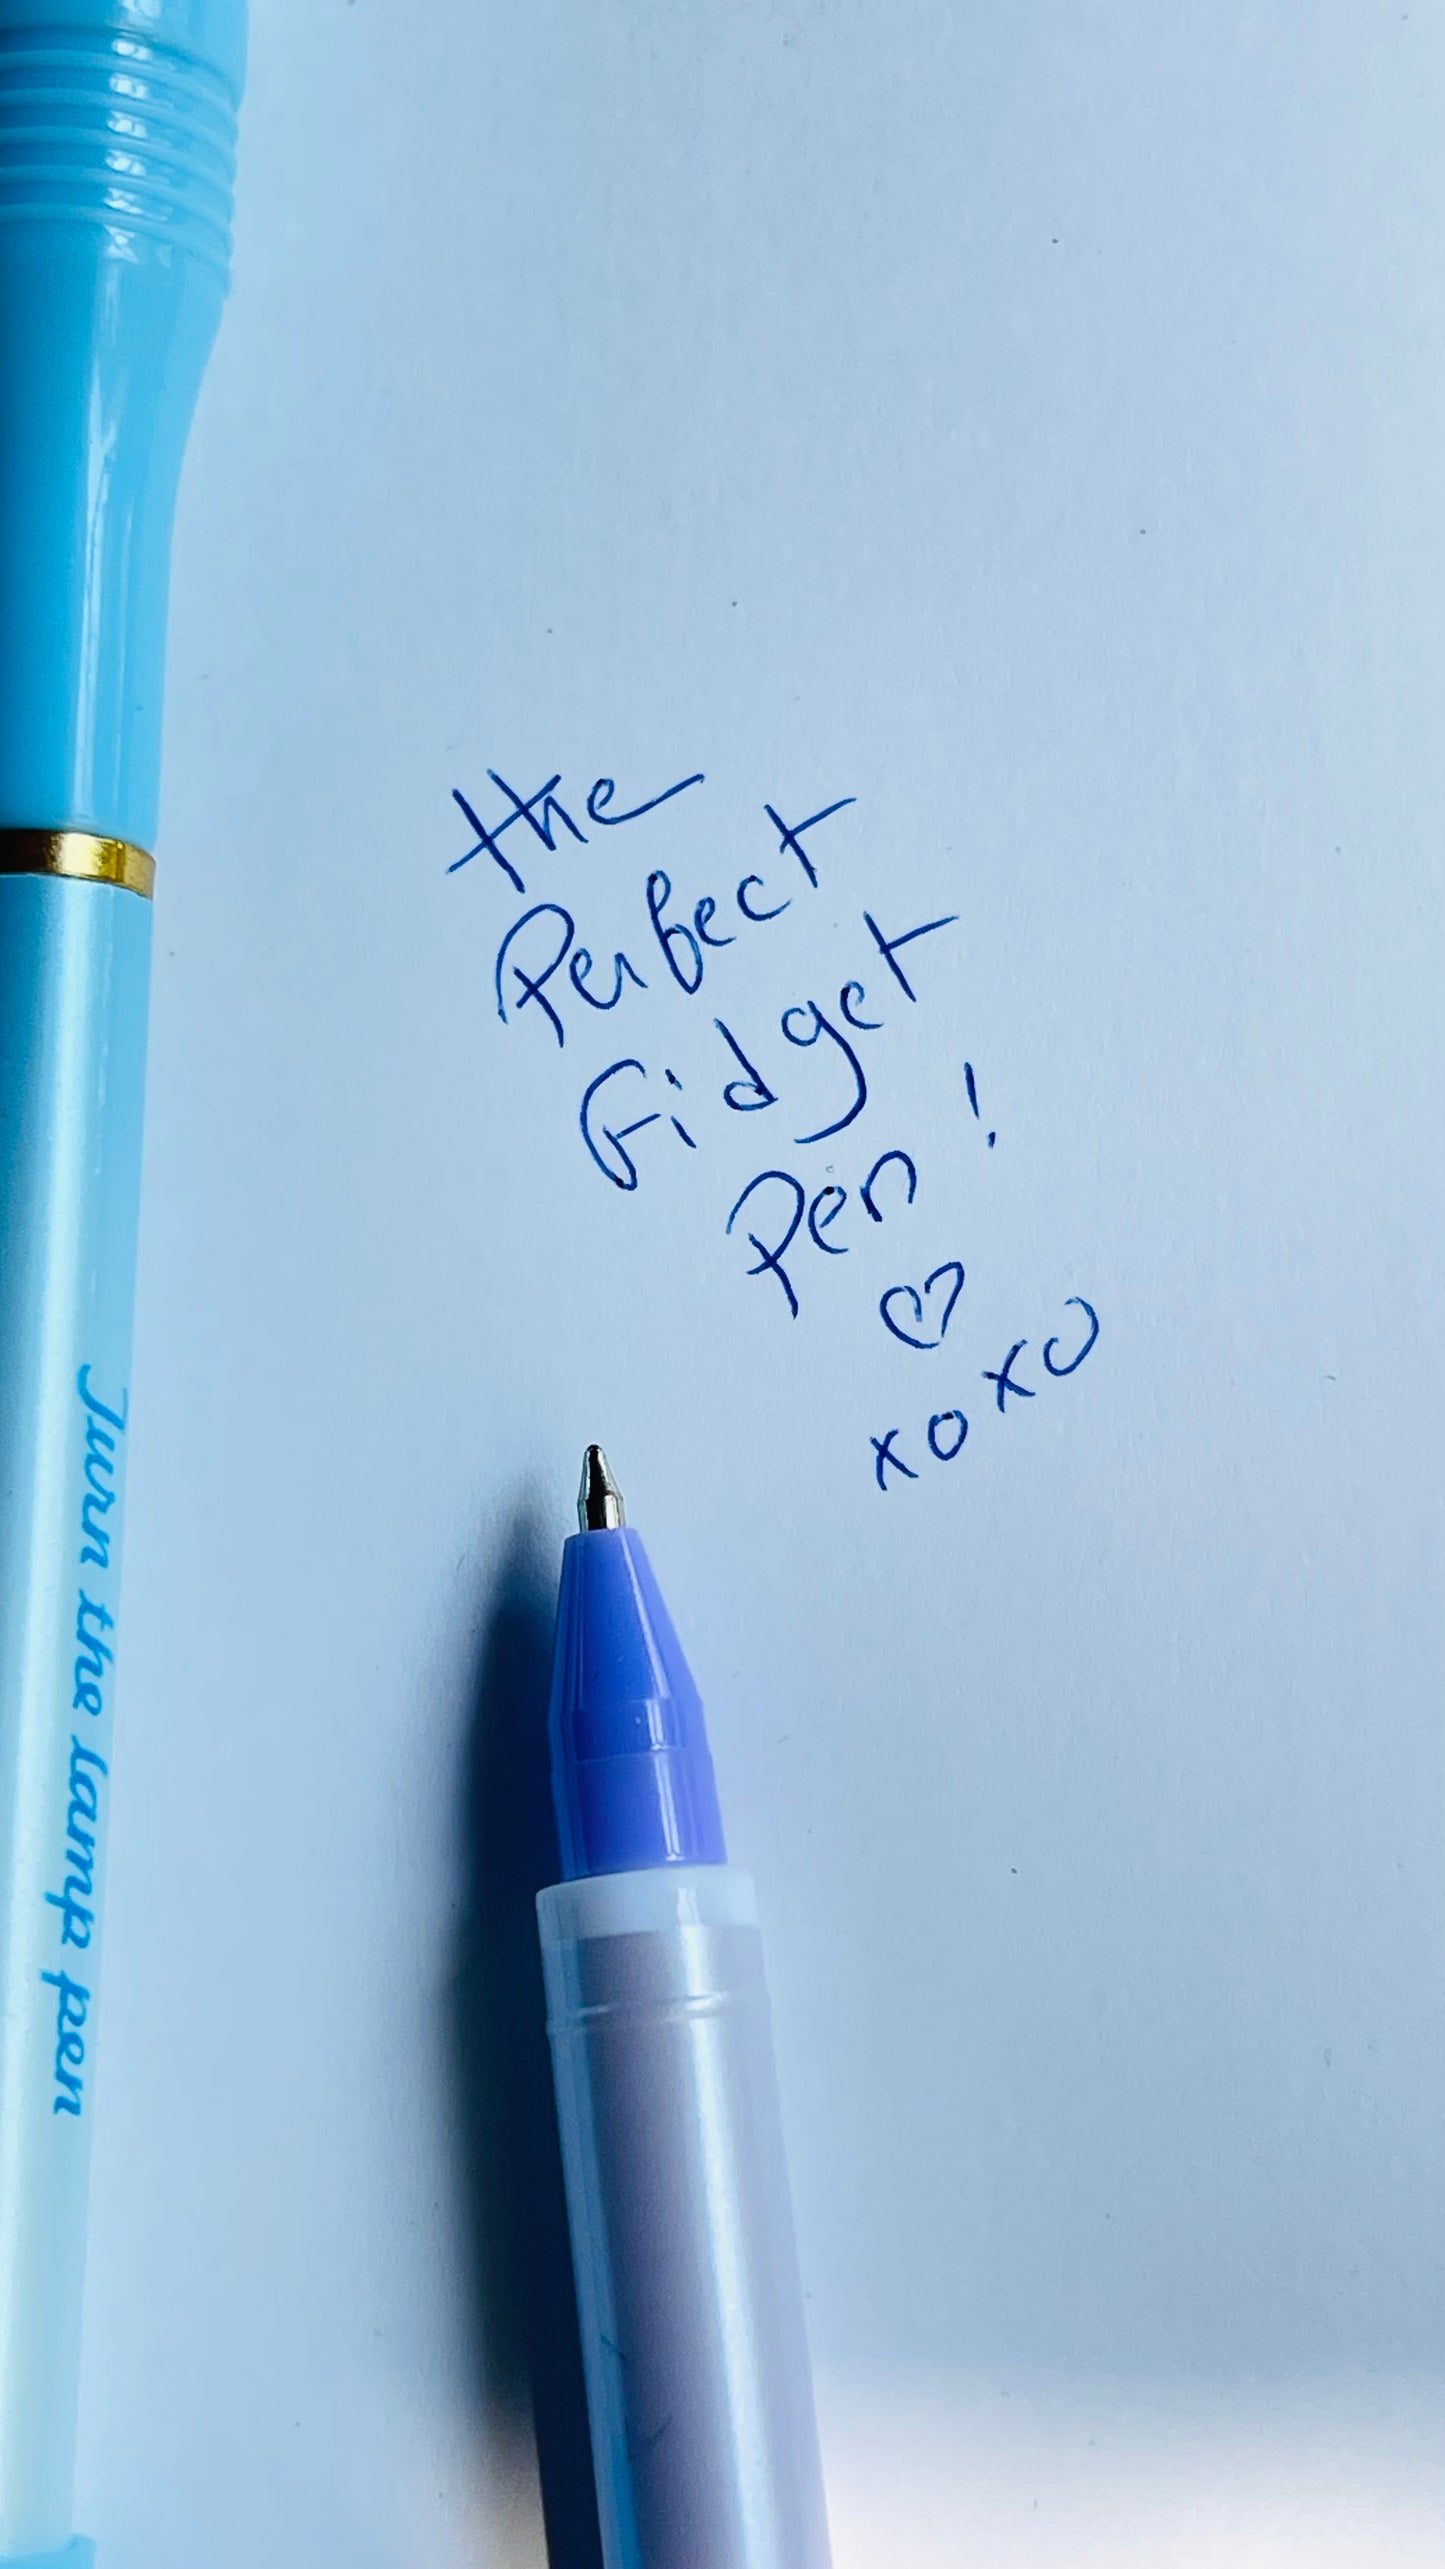 the
Perfect
Fidget
Pen!
♡
xoxo
Turn the lamp pen